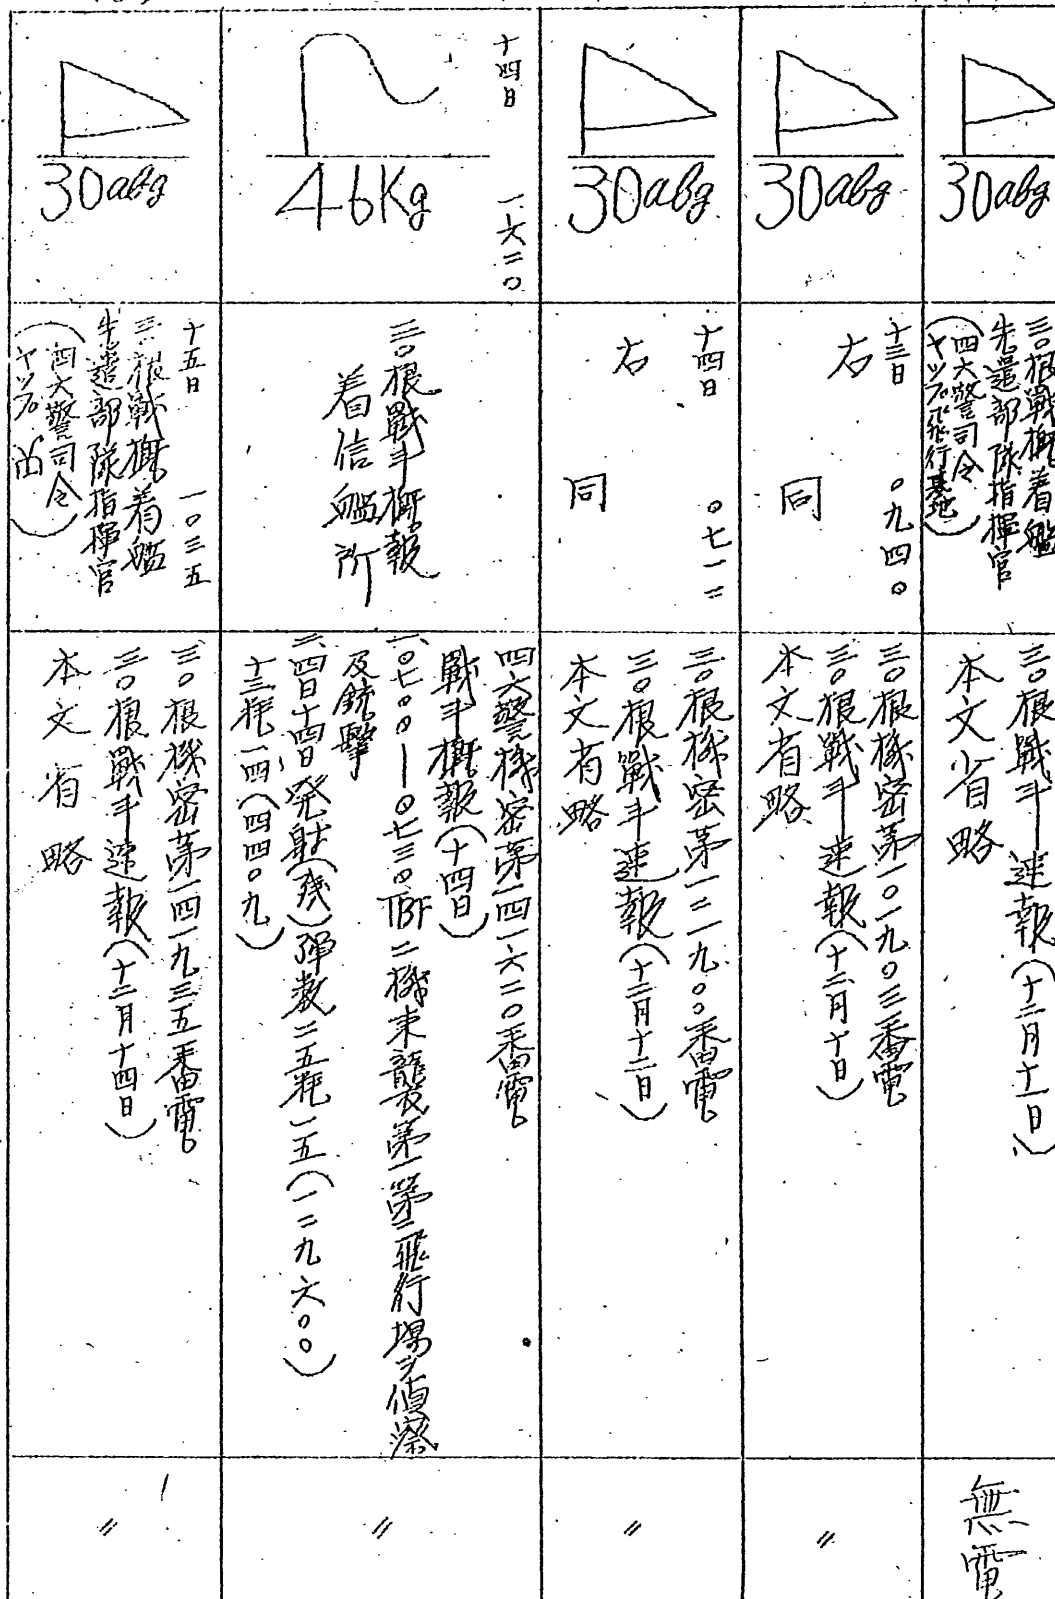 30abg
三〇根戰概着艦
先遣部隊指揮官
(四六警司令
ヤップ飛行基地)
三〇根戰斗速報(十二月十一日)
本文省略
無電
30abg
十三日 〇九四〇
右 同
三〇根機密第一〇一九〇三番電
三〇根戰斗速報(十二月十日)
本文省略
〃
30abg
十四日 〇七一二
右 同
三〇根機密第一二一九〇〇番電
三〇根戰斗速報(十二月十二日)
本文省略
〃
十四日 一六二〇
46Kg
三〇根戰斗概報
着信艦所
四六警機密第一四一六二〇番電
戰斗概報(十四日)
一、〇七〇〇—〇七三〇TBF二機来襲第一第二飛行場ヲ偵察
及銃擊
二、四日十四日発射(残)弾数二五粍一五(一二九六〇〇)
十三粍一四(四四〇九)
〃
30abg
十五日 一〇三五
三〇根戰概着艦
先遣部隊指揮官
(四六警司令
ヤップ)
三〇根機密第一四一九三五番電
三〇根戰斗速報(十二月十四日)
本文省略
〃